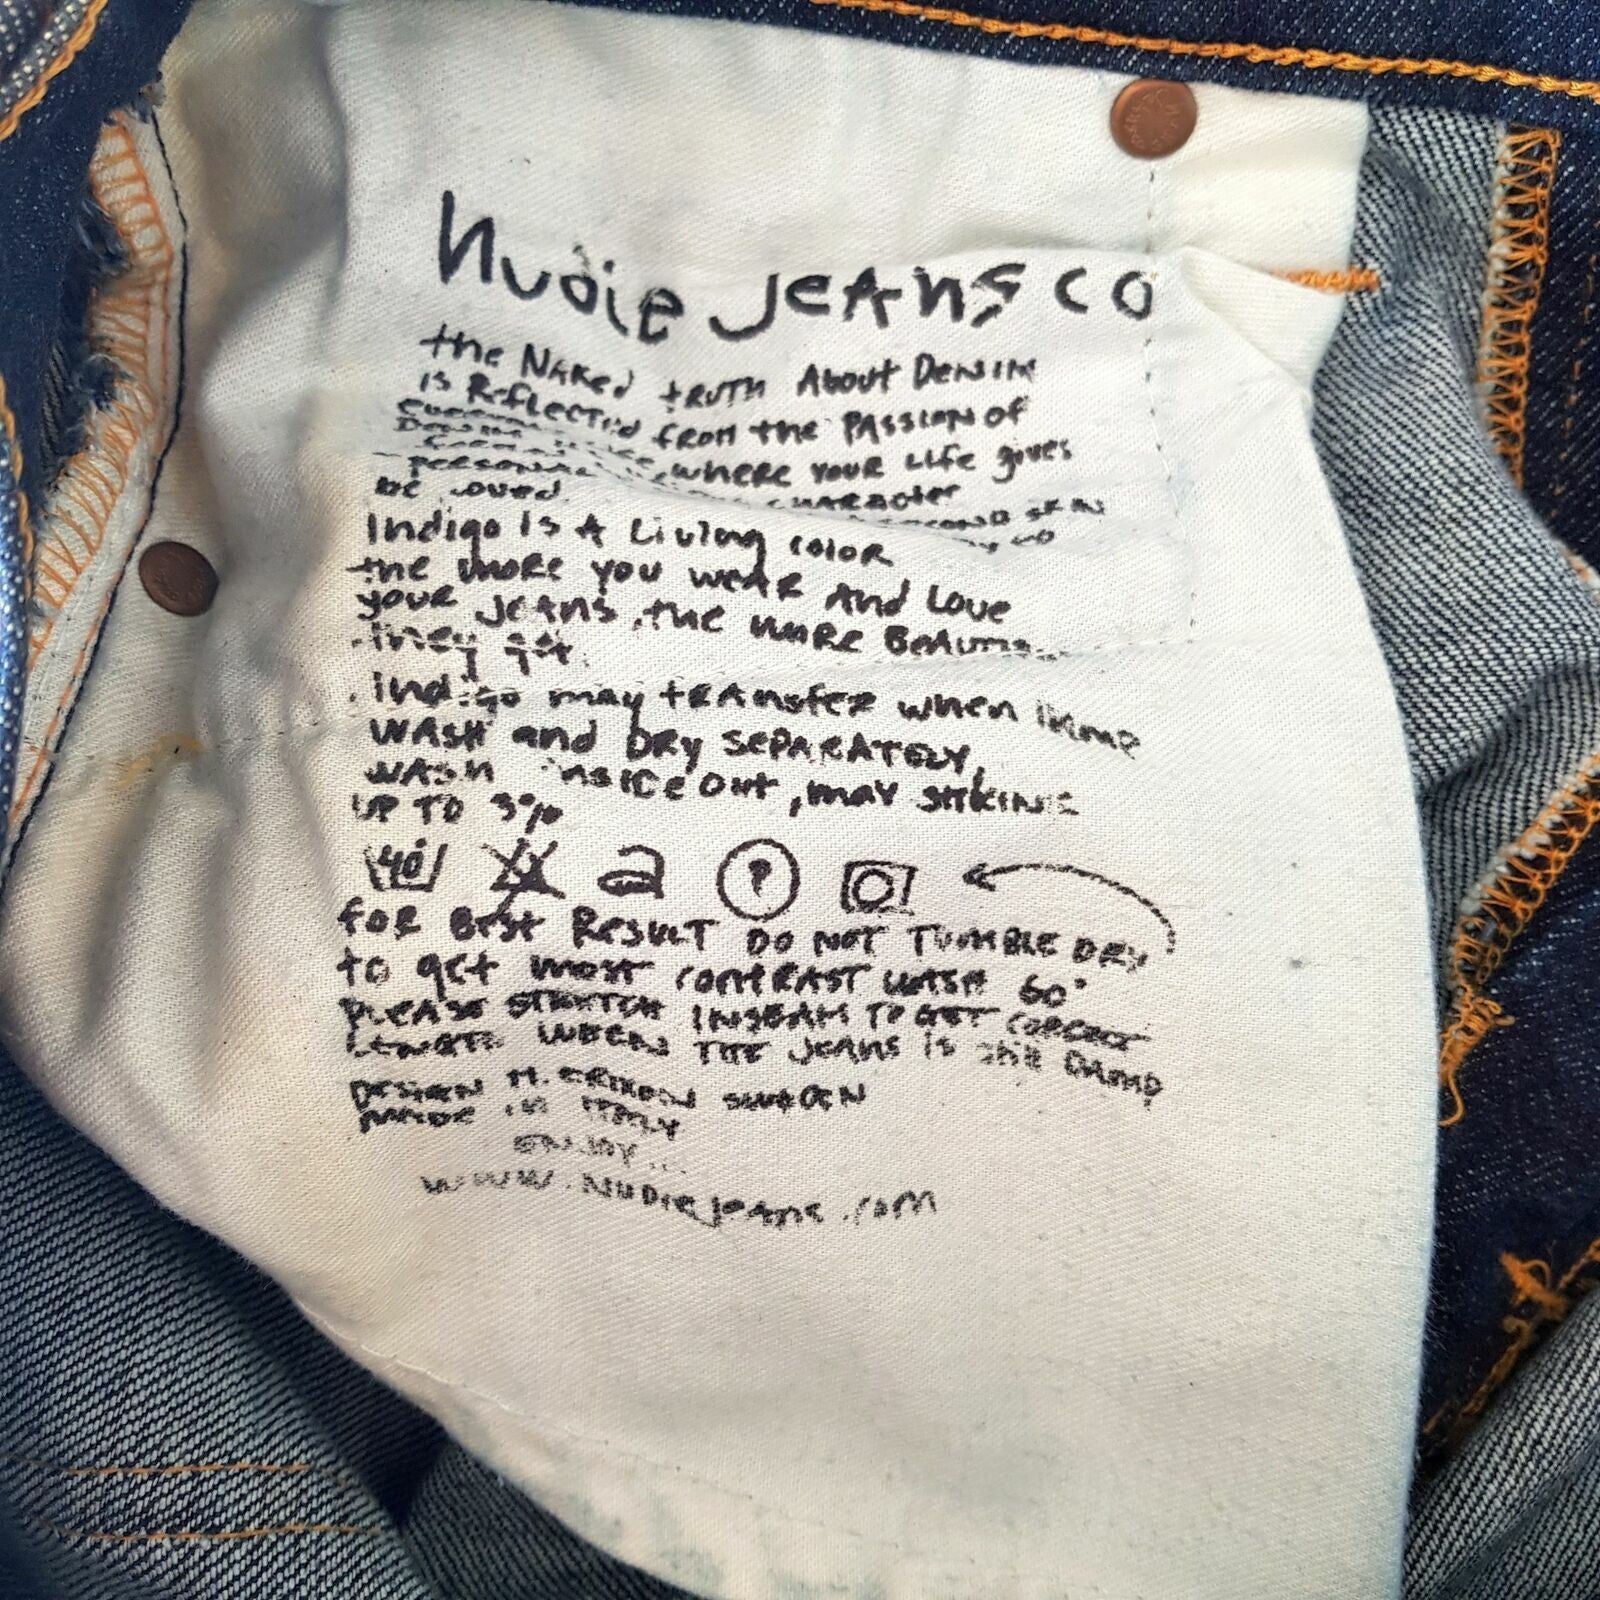 Nudie Jeans co
the Naked truth About Denim
is Reflected from the Passion of
where your Life gives
personal character
be loved.
Indigo is A Living color
the more you wear And Love
your Jeans, the more
they get.
indigo may transfer when
WAsh and Dry SEPARATELY,
WAsh inside out, may shrink
UP TO 3%
40 P
for Best Result DO NOT TUMBLE DRY
to get most contrast wash 60°
PLEASE STRETCH INSEAM TO GET correct
LENGTH WHEN THE jeans is still DAMP
DESIGN M. ERIXSON SWEDEN
MADE in ITALY
ENJOY...
www.Nudiejeans.com